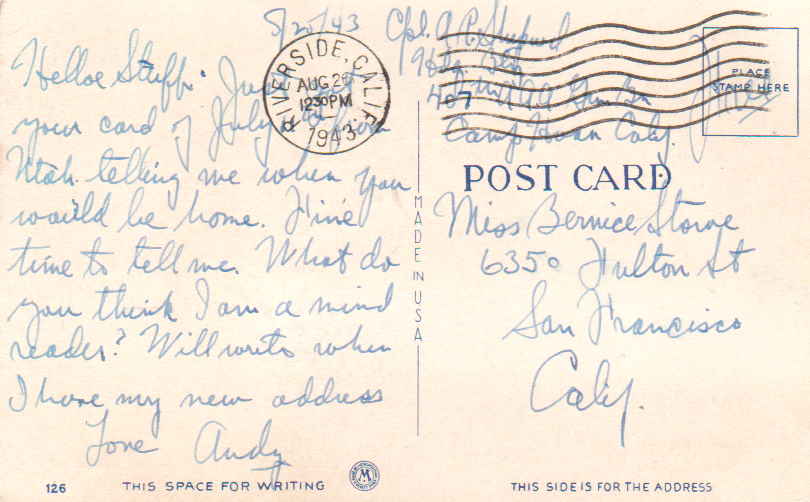 8/20/43
Helloe Stuff. Just
your card of July
Utah telling me when you
would be home. Fine
time to tell me. What do
you think I am a mind
reader? Will write when
I have my new address
Love Andy
126 THIS SPACE FOR WRITING
M
RIVERSIDE, CALIF.
AUG 2
1230 PM
1943
MADE IN USA
Cpl. A. P.
Hdq. Btry
407
Camp Haan Calif.
Free
PLACE
STAMP HERE
POST CARD
Miss Bernice Stowe
6350 Fulton St
San Francisco
Calif.
THIS SIDE IS FOR THE ADDRESS